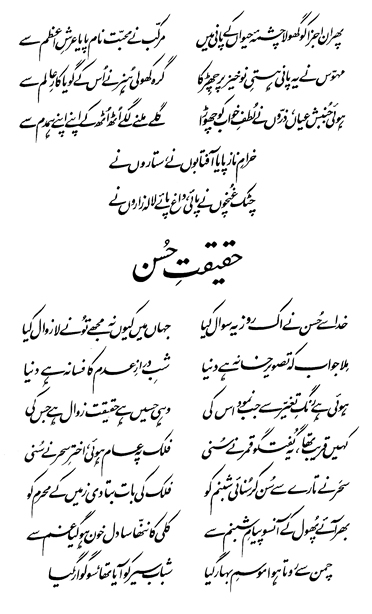 پھران اجزا کو گھولا چشمۂ حیواں کے پانی میں مرکّب نے محبّت نام پایا عرشِ اعظم سے
مہوّس نے یہ پانی ہستیِ نوخیز پر چھڑکا گرہ کھولی ہُنر نے اُس کے گویا کارِ عالم سے
ہوئی جُنبش عیاں، ذرّوں نے لُطفِ خواب کو چھوڑا گلے ملنے لگے اُٹھ اُٹھ کے اپنے اپنے ہمدم سے
خرامِ ناز پایا آفتابوں نے، ستاروں نے
چٹک غُنچوں نے پائی، داغ پائے لالہ زاروں نے
حقیقتِ حُسن
خدا سے حُسن نے اک روز یہ سوال کیا جہاں میں کیوں نہ مجھے تُو نے لازوال کیا
مِلا جواب کہ تصویر خانہ ہے دنیا شبِ درازِ عدم کا فسانہ ہے دنیا
ہوئی ہے رنگِ تغیّر سے جب نمود اس کی وہی حسیں ہے حقیقت زوال ہے جس کی
کہیں قریب تھا، یہ گفتگو قمر نے سُنی فلک پہ عام ہوئی، اخترِ سحر نے سُنی
سحر نے تارے سے سُن کر سُنائی شبنم کو فلک کی بات بتا دی زمیں کے محرم کو
بھر آئے پھول کے آنسو پیامِ شبنم سے کلی کا ننّھا سا دل خون ہو گیا غم سے
چمن سے روتا ہوا موسمِ بہار گیا شباب سیر کو آیا تھا، سوگوار گیا